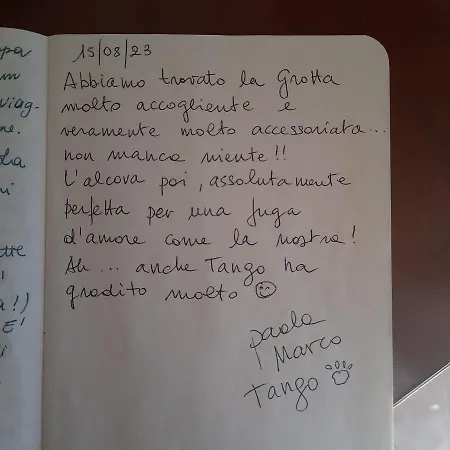 15/08/23
Abbiamo trovato la Grotta
molto accogliente e
veramente molto accessoriata...
non manca niente!!
L'alcova poi, assolutamente
perfetta per una fuga
d'amore come la nostra!
Ah... anche Tango ha
gradito molto ☺
paola
Marco
Tango
ppa
viag-
ne.
ette
a!)
E'